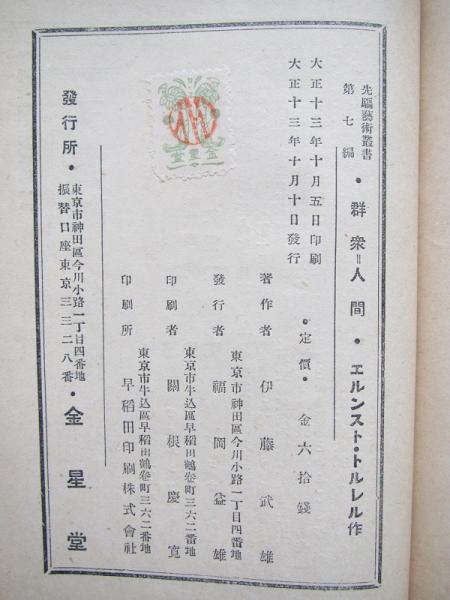 先驅藝術叢書
第七編
・群衆=人間・エルンスト・トルレル作
大正十三年十月五日印刷
大正十三年十月十日發行
・定價・金六拾錢
著作者 伊藤武雄
東京市神田區今川小路一丁目四番地
發行者 福岡益雄
東京市牛込區早稻田鶴卷町三六二番地
印刷者 關根慶寬
東京市牛込區早稻田鶴卷町三六二番地
印刷所 早稻田印刷株式會社
發行所・東京市神田區今川小路一丁目四番地
振替口座東京三三二八番・金星堂
金星堂